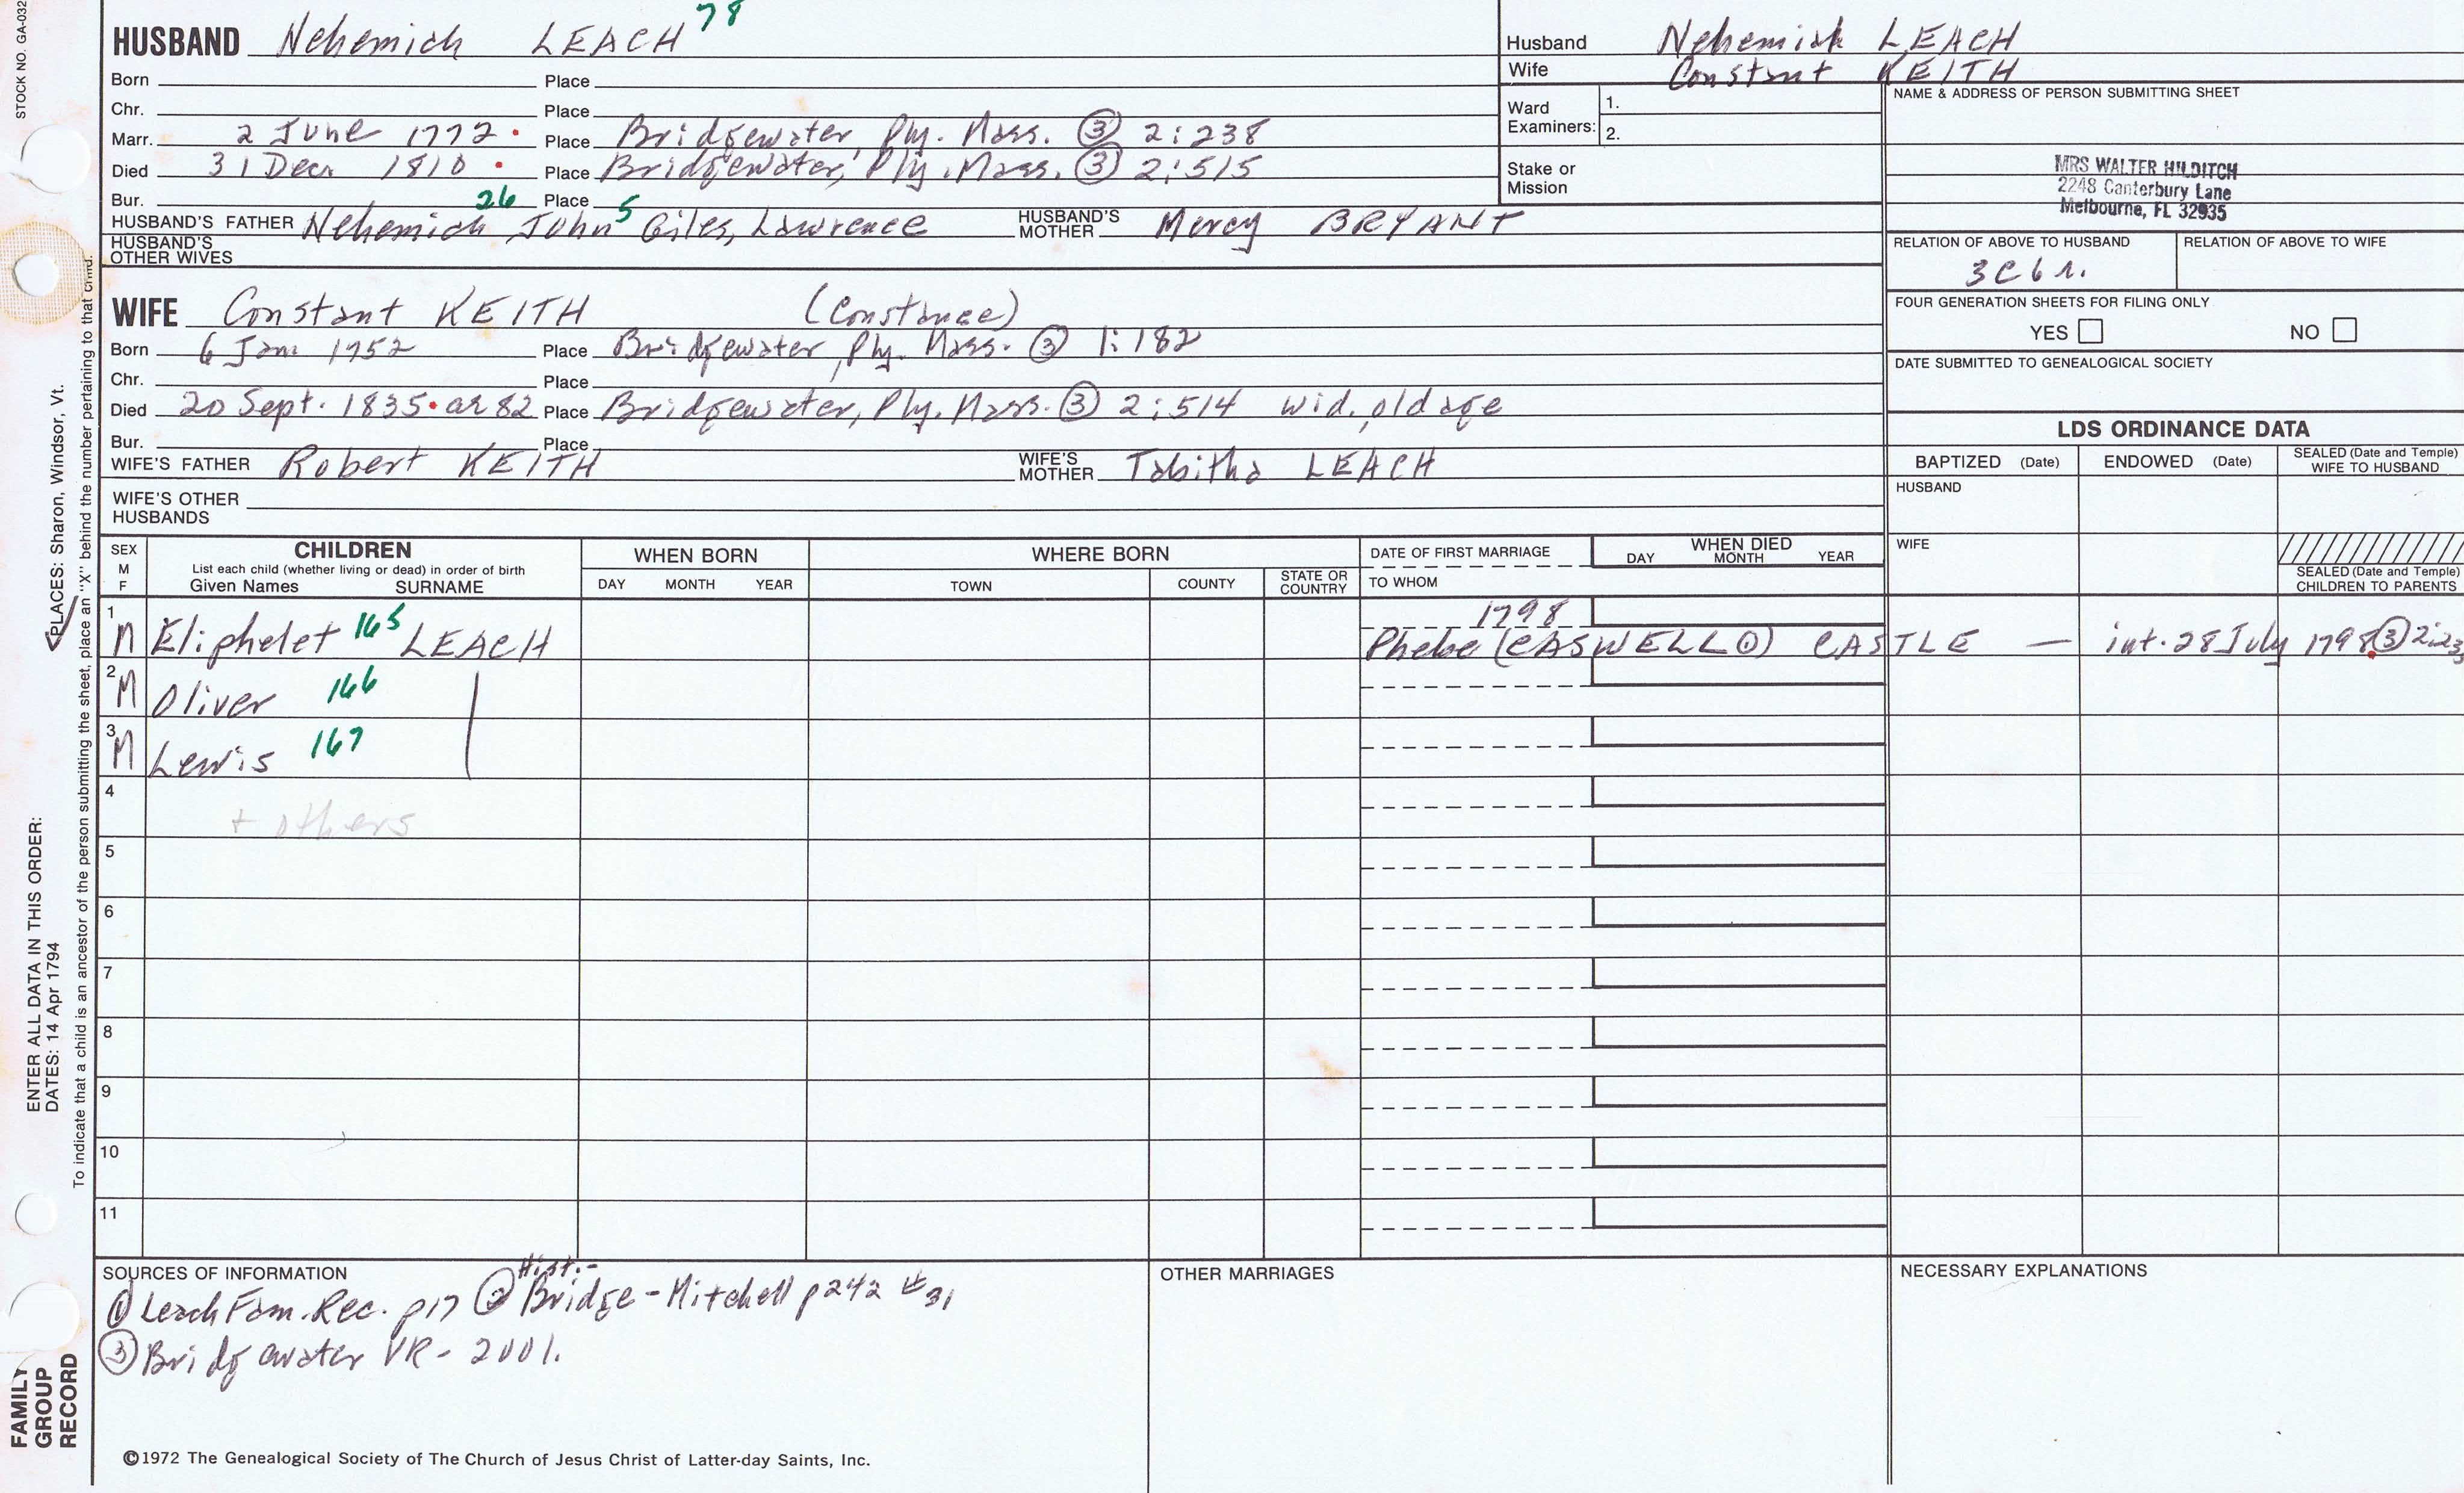 STOCK NO. GA-032
HUSBAND Nehemiah LEACH 78
Born Place
Chr. Place
Marr. 2 June 1772 Place Bridgewater, Ply. Mass. ③ 2:238
Died 31 Dec. 1810 Place Bridgewater, Ply. Mass. ③ 2:515
Bur. Place
HUSBAND'S FATHER Nehemiah 26 John 5 Giles, Lawrence HUSBAND'S MOTHER Mercy BRYANT
HUSBAND'S OTHER WIVES
WIFE Constant KEITH (Constance)
Born 6 Jan. 1752 Place Bridgewater, Ply. Mass. ③ 1:182
Chr. Place
Died 20 Sept. 1835 ae 82 Place Bridgewater, Ply. Mass. ③ 2:514 wid, old age
Bur. Place
WIFE'S FATHER Robert KEITH WIFE'S MOTHER Tabitha LEACH
WIFE'S OTHER HUSBANDS
Husband Nehemiah LEACH
Wife Constant KEITH
Ward Examiners: 1.
2.
Stake or Mission
NAME & ADDRESS OF PERSON SUBMITTING SHEET
MRS WALTER HILDITCH
2248 Canterbury Lane
Melbourne, FL 32935
RELATION OF ABOVE TO HUSBAND RELATION OF ABOVE TO WIFE
3C6r.
FOUR GENERATION SHEETS FOR FILING ONLY
YES NO
DATE SUBMITTED TO GENEALOGICAL SOCIETY
LDS ORDINANCE DATA
BAPTIZED (Date) ENDOWED (Date) SEALED (Date and Temple) WIFE TO HUSBAND
HUSBAND
WIFE
SEALED (Date and Temple) CHILDREN TO PARENTS
SEX M F
CHILDREN
List each child (whether living or dead) in order of birth
Given Names SURNAME
WHEN BORN
DAY MONTH YEAR
WHERE BORN
TOWN COUNTY STATE OR COUNTRY
DATE OF FIRST MARRIAGE
TO WHOM
WHEN DIED
DAY MONTH YEAR
1 M Eliphelet 165 LEACH 1798
Phebe (CASWELL ①) CASTLE — int. 28 July 1798 ③
2 M Oliver 166
3 M Lewis 167
4 + others
5
6
7
8
9
10
11
SOURCES OF INFORMATION
① Leach Fam. Rec. p17 ② Hist.- Bridge-Mitchell p242 #31
③ Bridgewater VR- 2001.
OTHER MARRIAGES
NECESSARY EXPLANATIONS
©1972 The Genealogical Society of The Church of Jesus Christ of Latter-day Saints, Inc.
FAMILY GROUP RECORD
ENTER ALL DATA IN THIS ORDER:
DATES: 14 Apr 1794
PLACES: Sharon, Windsor, Vt.
To indicate that a child is an ancestor of the person submitting the sheet, place an "X" behind the number pertaining to that child.